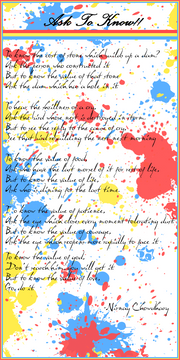 Ask To Know!!
To know the cost of stone which builds up a dam?
Ask the person who constructed it
But to know the value of that stone
Ask the dam which has a hole in it.
To hear the shrillness of a cry,
Ask the bird whose nest is destroyed in storm
But to see the reply to the cause of cry,
See that bird rebuilding the nest next morning
To know the value of food,
Ask who have the last morsel of it for rest of life,
But to know the value of life,
Ask who is dining for the last time.
To know the value of patience,
Ask the eye which closes every moment tolerating dust
But to know the value of courage,
Ask the eye which reopens more rapidly to face it
To know the value of god,
Don't search him, you will get it
But to know the value of
Go, do it
Nirav Chowdhury